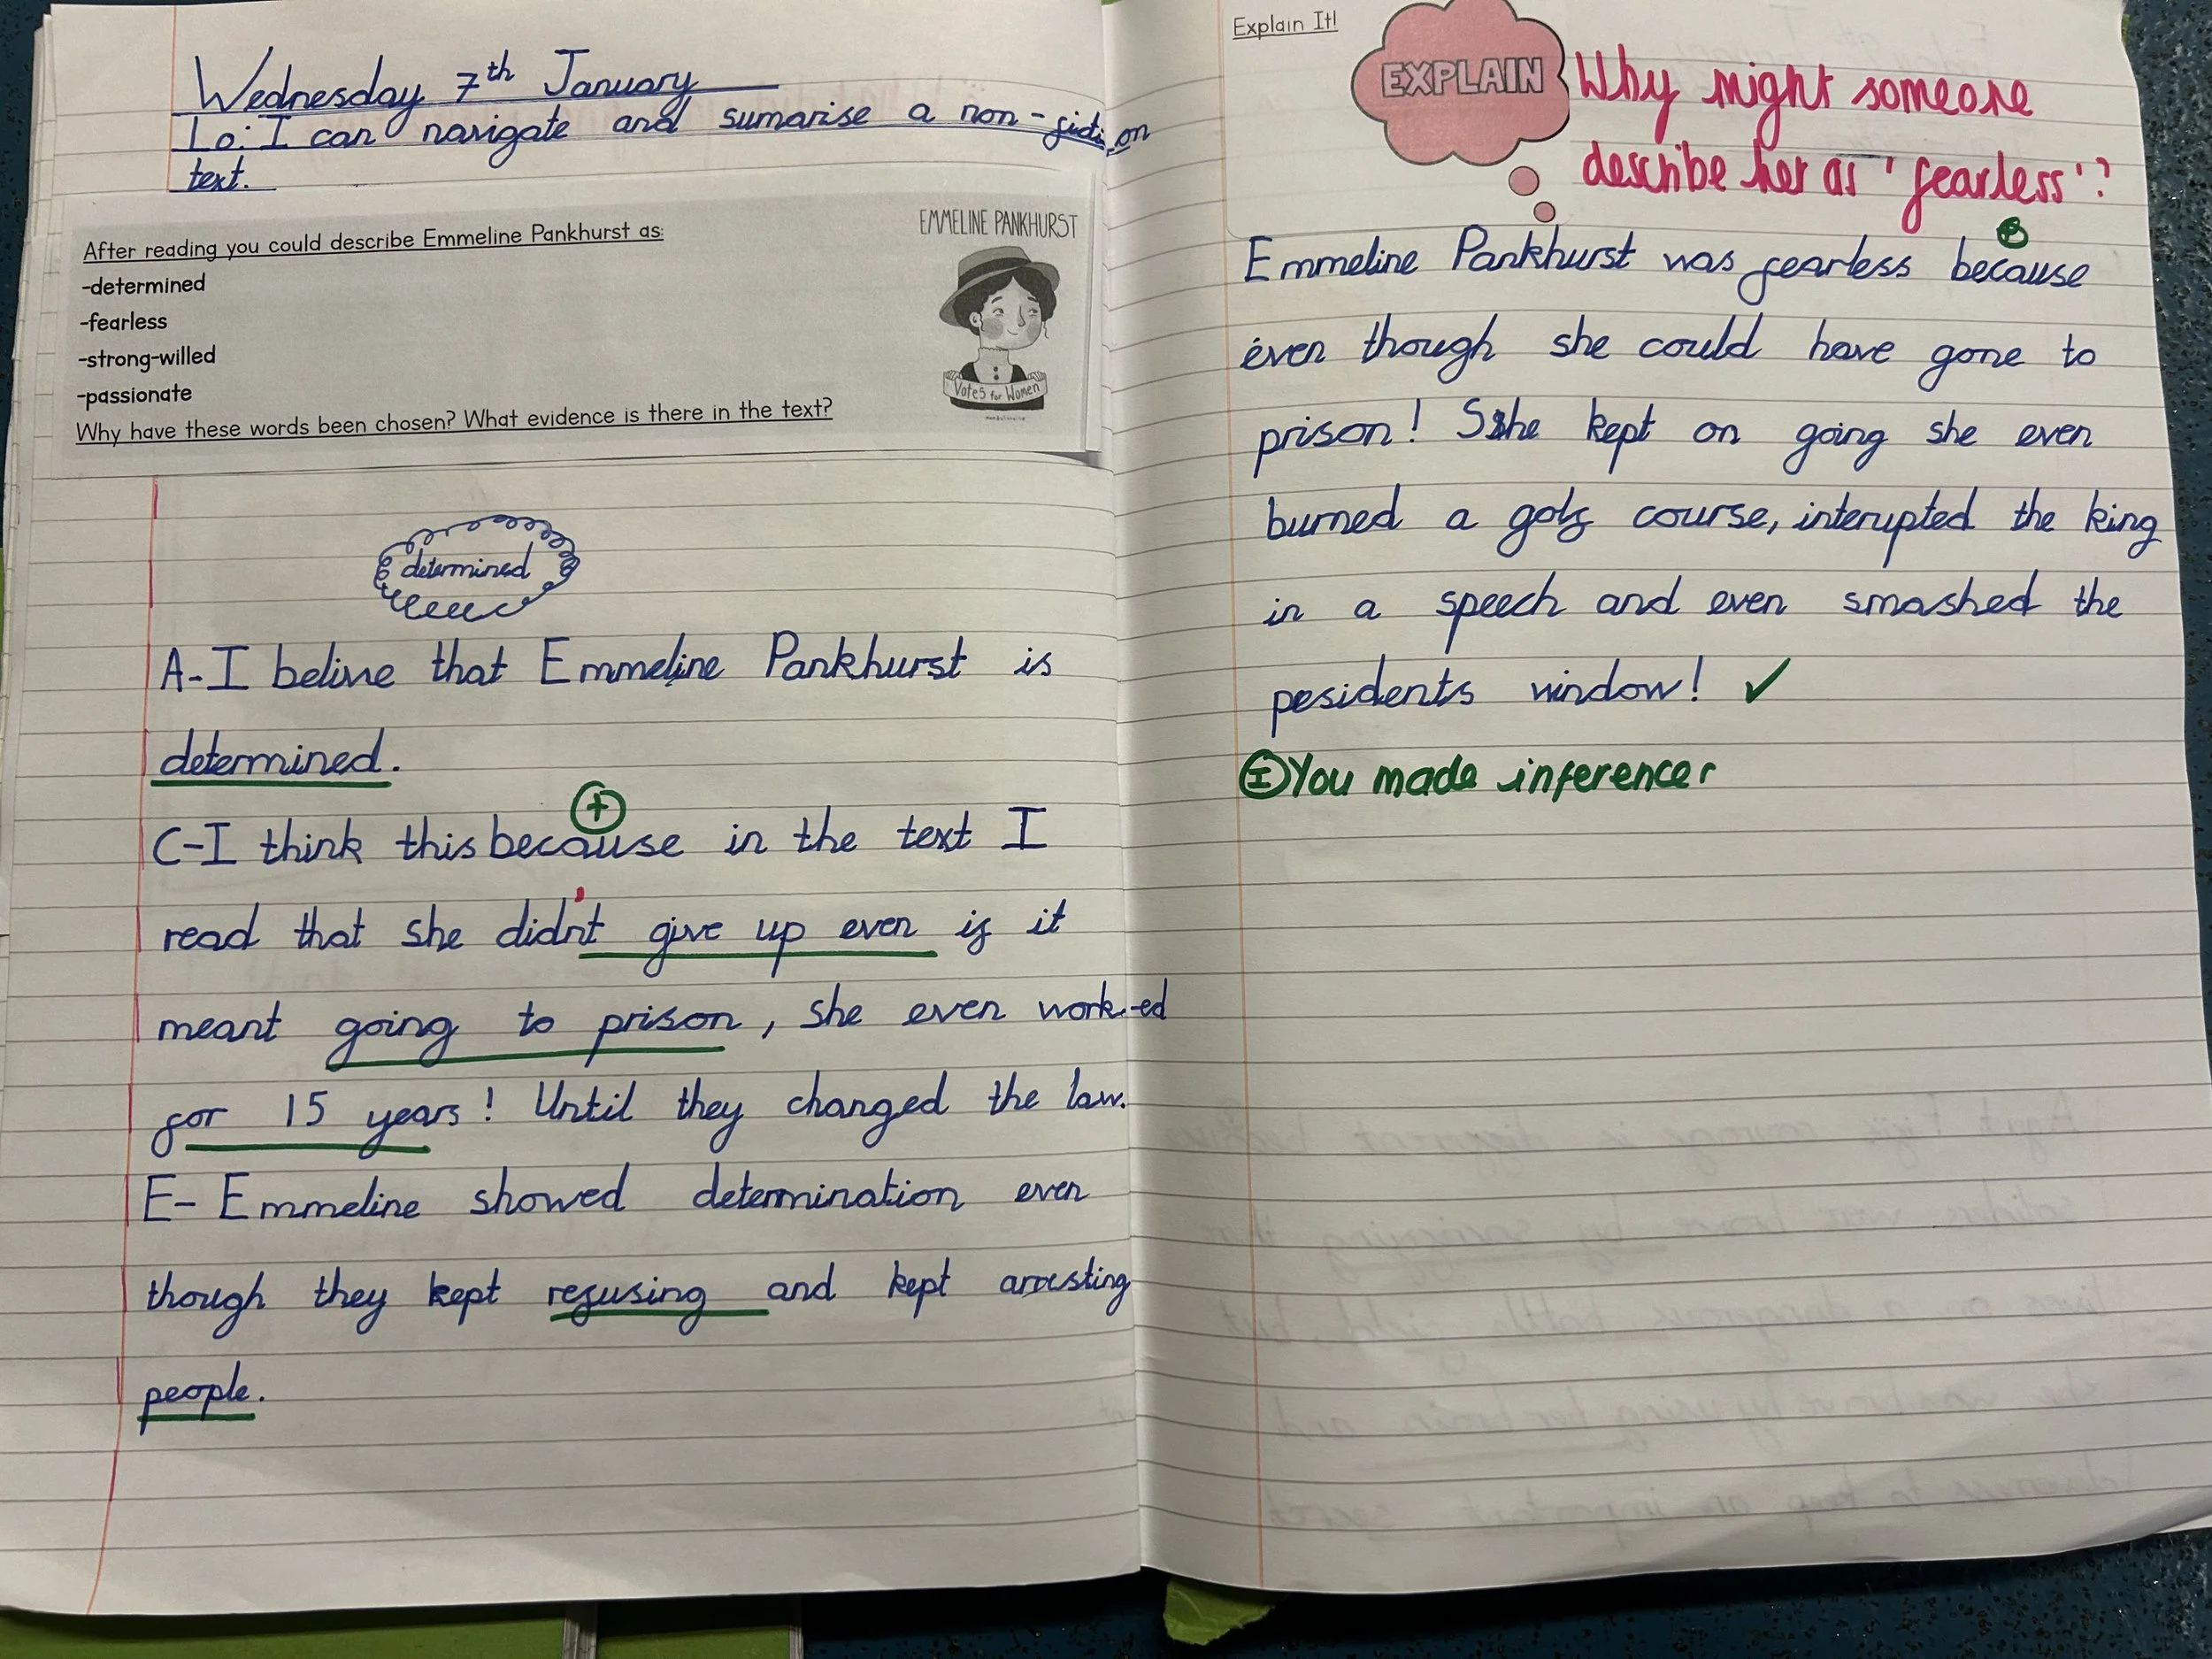 Wednesday 7th January
Lo: I can navigate and sumarise a non-fiction
text.
After reading you could describe Emmeline Pankhurst as:
-determined
-fearless
-strong-willed
-passionate
Why have these words been chosen? What evidence is there in the text?
EMMELINE PANKHURST
Votes for Women
determined
A-I belive that Emmeline Pankhurst is
determined.
+
C-I think this because in the text I
read that she didn't give up even if it
meant going to prison, she even work-ed
for 15 years! Until they changed the law.
E- Emmeline showed determination even
though they kept refusing and kept arresting
people.
Explain It!
EXPLAIN
Why might someone
describe her as 'fearless'?
Emmeline Pankhurst was fearless because
even though she could have gone to
prison! She kept on going she even
burned a golf course, interupted the king
in a speech and even smashed the
pesidents window! ✓
I You made inferences